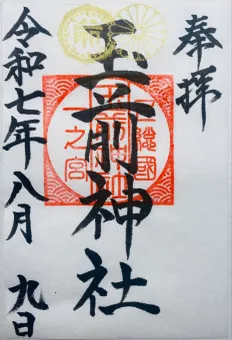 奉拝
玉前神社
上総國
一之宮
令和七年八月 九日